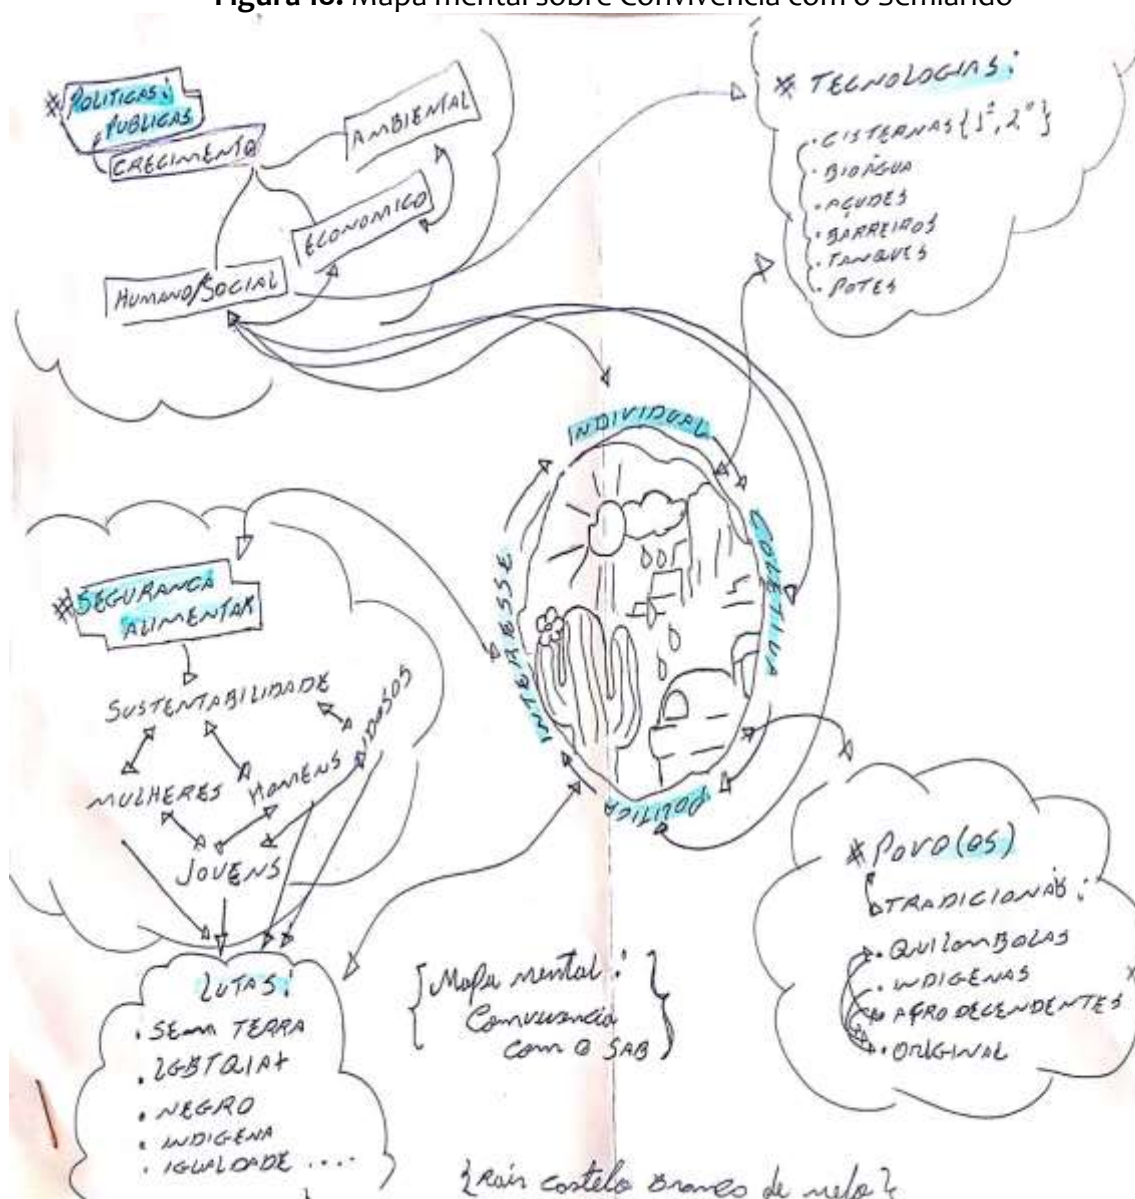 Figura 18. Mapa mental sobre Convivência com o Semiárido
# POLITICAS:
PUBLICAS
CRECIMENTO
AMBIENTAL
ECONOMICO
HUMANO/SOCIAL
# TECNOLOGIAS:
• CISTERNAS {1ª, 2ª}
• BIOÁGUA
• AÇUDES
• BARREIROS
• TANQUES
• POTES
INDIVIDUAL
COLETIVA
POLITICA
INTERESSE
# SEGURANCA
ALIMENTAR
SUSTENTABILIDADE
MULHERES
HOMENS
IDOSOS
JOVENS
LUTAS:
• SEM TERRA
• LGBTQIA+
• NEGRO
• INDIGENA
• IGUALDADE ....
# POVO(OS)
TRADICIONAIS:
• QUILOMBOLAS
• INDIGENAS
• AFRO DECENDENTES
• ORIGINAL
{Mapa mental:
Convivencia
com o SAB}
{Castelo Branco de melo}